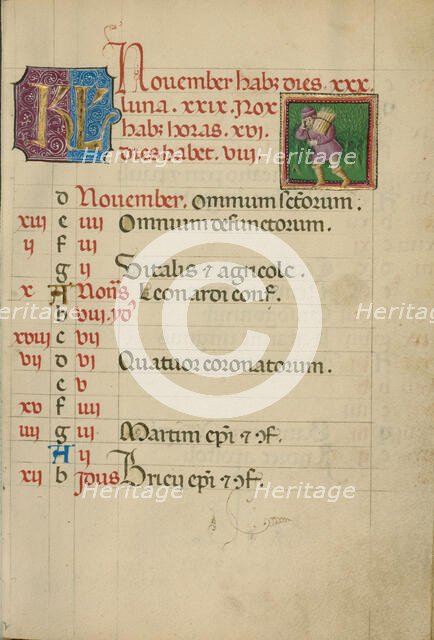 KL
November habz dies. xxx.
luna. xxix. Nox
habz horas. xvi.
dies habet. viii.
d November. Omnium sctorum.
xiii e iiii Omnium defunctorum.
ii f iii
g ii Vitalis & agricole.
x A Nons Leonardi conf.
b viii yd'
xviii c vii
vii d vi Quatuor coronatorum.
e v
xv f iiii
iiii g iii Martini epi & cf.
A ii
xii b Idus Bricii epi & cf.
Heritage
Heritage
Heritage
Heritage
Heritage
Heritage
Images
Images
Images
Images